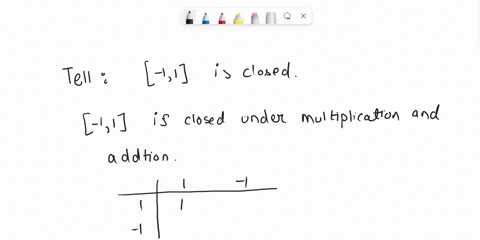 Tell : [-1,1] is closed.
[-1,1] is closed under multiplication and
addtion.
1 -1
1 1
-1